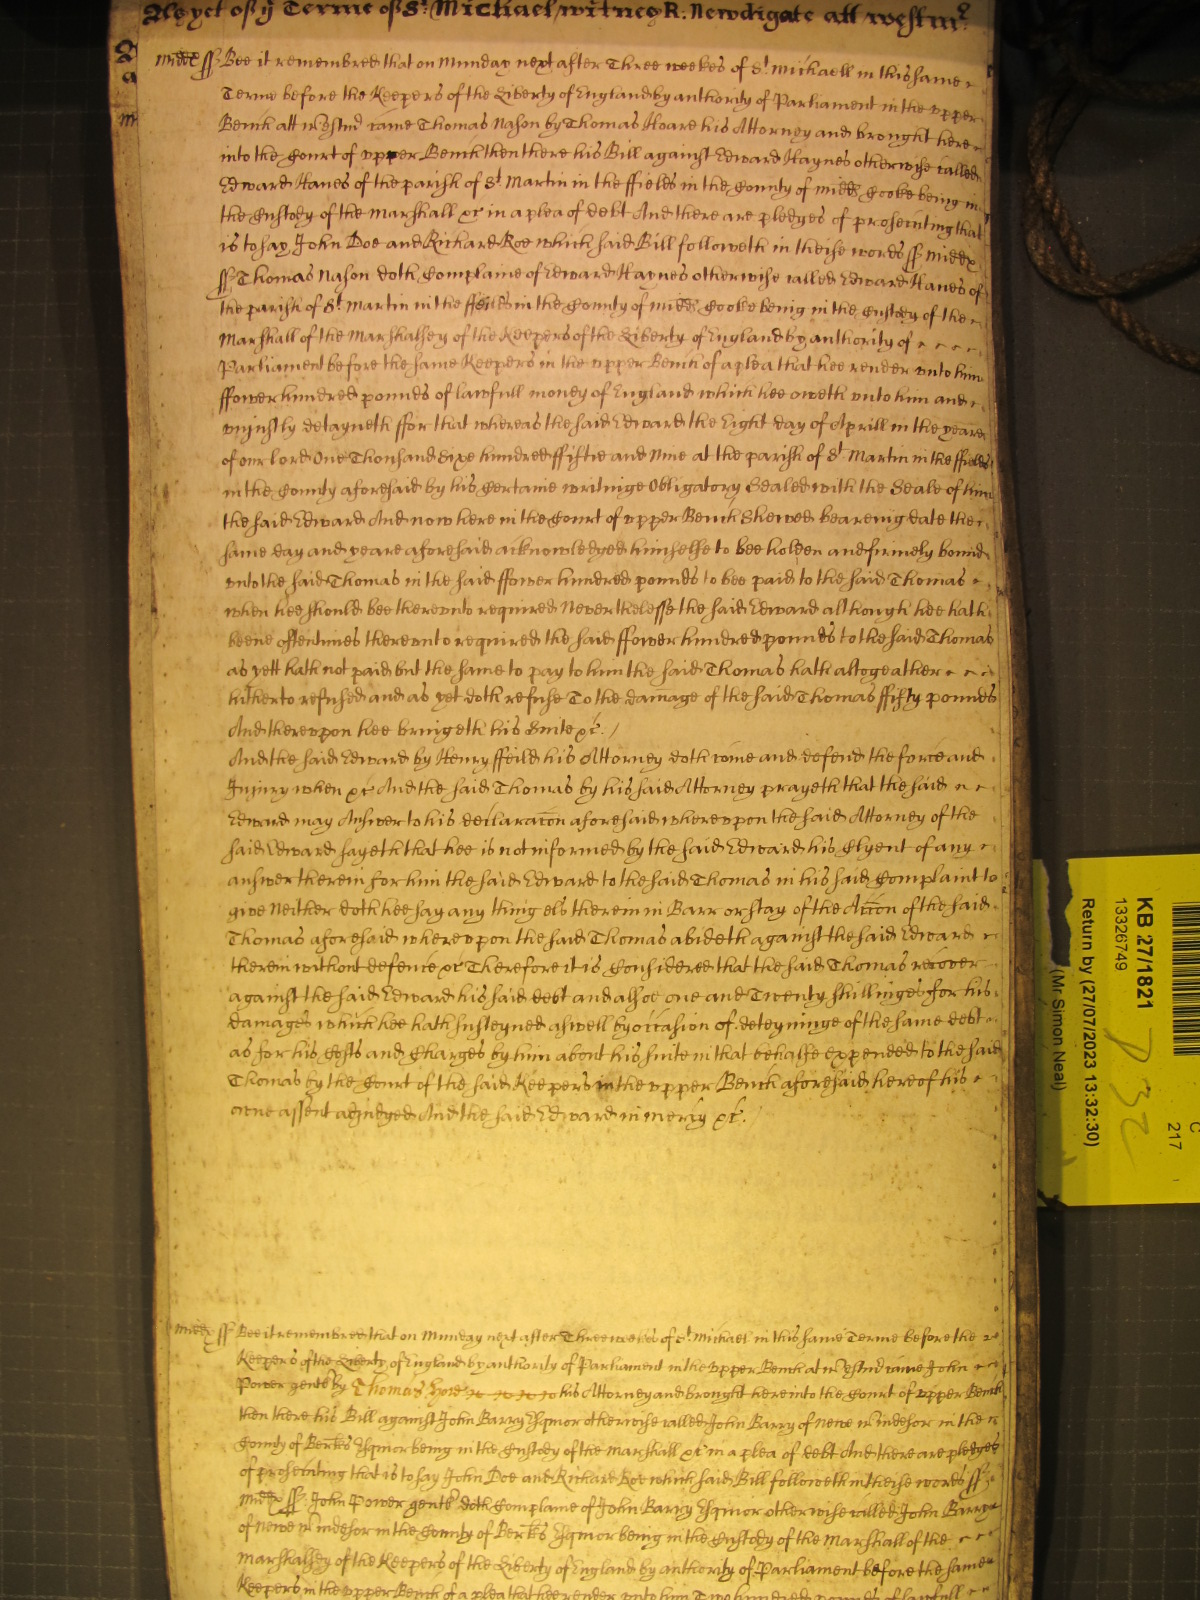 As yet of ye Terme of St. Michael witnes R. Newdigate att westmr
Middx ss Bee it remembred that on Munday next after Three weekes of St Michaell in this same
Terme before the Keepers of the Liberty of England by authority of Parliament in the vpper
Bench att Westmr came Thomas Nason by Thomas Hoare his Attorney and brought here
into the Court of vpper Bench then there his Bill against Edward Haynes otherwise called
Edward Hanes of the parish of St Martin in the ffields in the County of Midds Cooke being in
the Custody of the Marshall &c in a plea of debt And there are pledges of prosecuting that
is to say John Doe and Richard Roe which said Bill followeth in theise words ss Middx
ss Thomas Nason doth Complaine of Edward Haynes otherwise called Edward Hanes of
the parish of St Martin in the ffeilds in the County of Midds Cooke being in the Custody of the
Marshall of the Marshallsey of the Keepers of the Liberty of England by authority of
Parliament before the same Keepers in the vpper Bench of a plea that hee render vnto him
ffower hundred pounds of lawfull money of England which hee oweth vnto him and
vniustly detayneth ffor that whereas the said Edward the Eight day of Aprill in the yeare
of our lord One Thousand Sixe hundred ffiftie and Nine at the parish of St Martin in the ffields
in the County aforesaid by his Certaine writinge Obligatory Sealed with the Seale of him
the said Edward And now here in the Court of vpper Bench Shewed beareing date the
same day and yeare aforesaid acknowledged himselfe to bee holden and firmely bound
vnto the said Thomas in the said ffower hundred pounds to bee paid to the said Thomas
when hee should bee therevnto required Neverthelesse the said Edward although hee hath
beene oftentimes therevnto required the said ffower hundred pounds to the said Thomas
as yett hath not paid but the same to pay to him the said Thomas hath altogeather
hitherto refused and as yet doth refuse To the damage of the said Thomas ffifty pounds
And therevpon hee bringeth his Suite &c.
And the said Edward by Henry ffeild his Attorney doth come and defend the force and
Injury when &c And the said Thomas by his said Attorney prayeth that the said
Edward may Answer to his declaracon aforesaid wherevpon the said Attorney of the
said Edward sayeth that hee is not informed by the said Edward his Clyent of any
answer therein for him the said Edward to the said Thomas in his said Complaint to
give Neither doth hee say any thing els therein in Barr or stay of the Accon of the said
Thomas aforesaid wherevpon the said Thomas abideth against the said Edward
therein without defence &c Therefore it is Considered that the said Thomas recover
against the said Edward his said debt and alsoe one and Twenty shillinges for his
damages which hee hath susteyned aswell by occasion of deteyninge of the same debt
as for his Costs and Charges by him about his suite in that behalfe expended to the said
Thomas by the Court of the said Keepers in the vpper Bench aforesaid here of his
owne assent adiudged And the said Edward in mercy &c.
Middx ss Bee it remembred that on Munday next after Three weekes of St Michael in this same Terme before the
Keepers of the Liberty of England by authority of Parliament in the vpper Bench at Westmr came John
Power gentl by Thomas Hoare his Attorney and brought here into the Court of vpper Bench
then there his Bill against John Barry Esquior otherwise called John Barry of Newe Windesor in the
County of Berks Esquior being in the Custody of the Marshall &c in a plea of debt And there are pledges
of prosecuting that is to say John Doe and Richard Roe which said Bill followeth in theise words ss
Middx ss John Power gentl doth Complaine of John Barry Esquior otherwise called John Barry
of Newe Windesor in the County of Berks Esquior being in the Custody of the Marshall of the
Marshallsey of the Keepers of the Liberty of England by authority of Parliament before the same
Keepers in the vpper Bench of a plea that hee render vnto him Two hundred pounds of lawfull
KB 27/1821
13326749
Return by (27/07/2023 13:32:30)
(Mr Simon Neal)
C
217